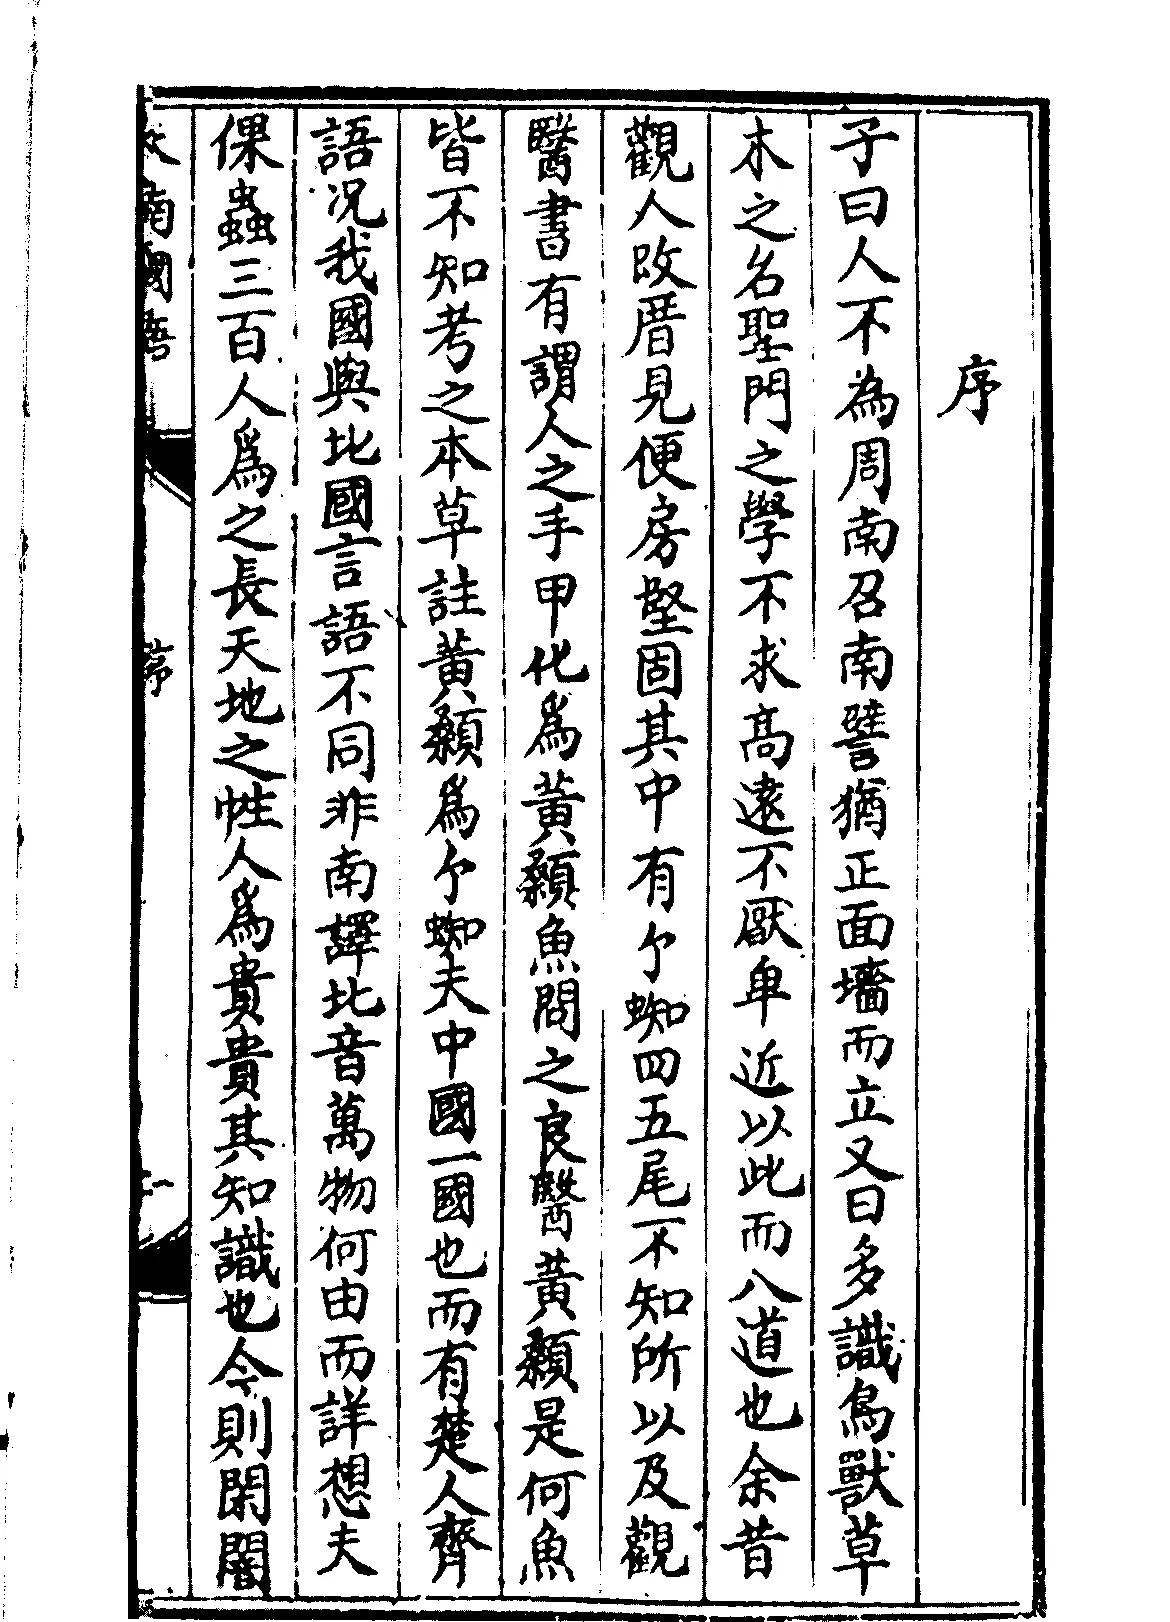 序
子曰人不為周南召南譬猶正面墻而立又曰多識鳥獸草
木之名聖門之學不求高遠不厭卑近以此而入道也余昔
觀人改厝見便房堅固其中有个蜘四五尾不知所以及觀
醫書有謂人之手甲化爲黃顙魚問之良醫黃顙是何魚
皆不知考之本草註黃顙爲个蜘夫中國一國也而有楚人齊
語况我國與北國言語不同非南譯北音萬物何由而詳想夫
倮蟲三百人爲之長天地之性人爲貴貴其知識也今則閑閣
大南國語 序 一